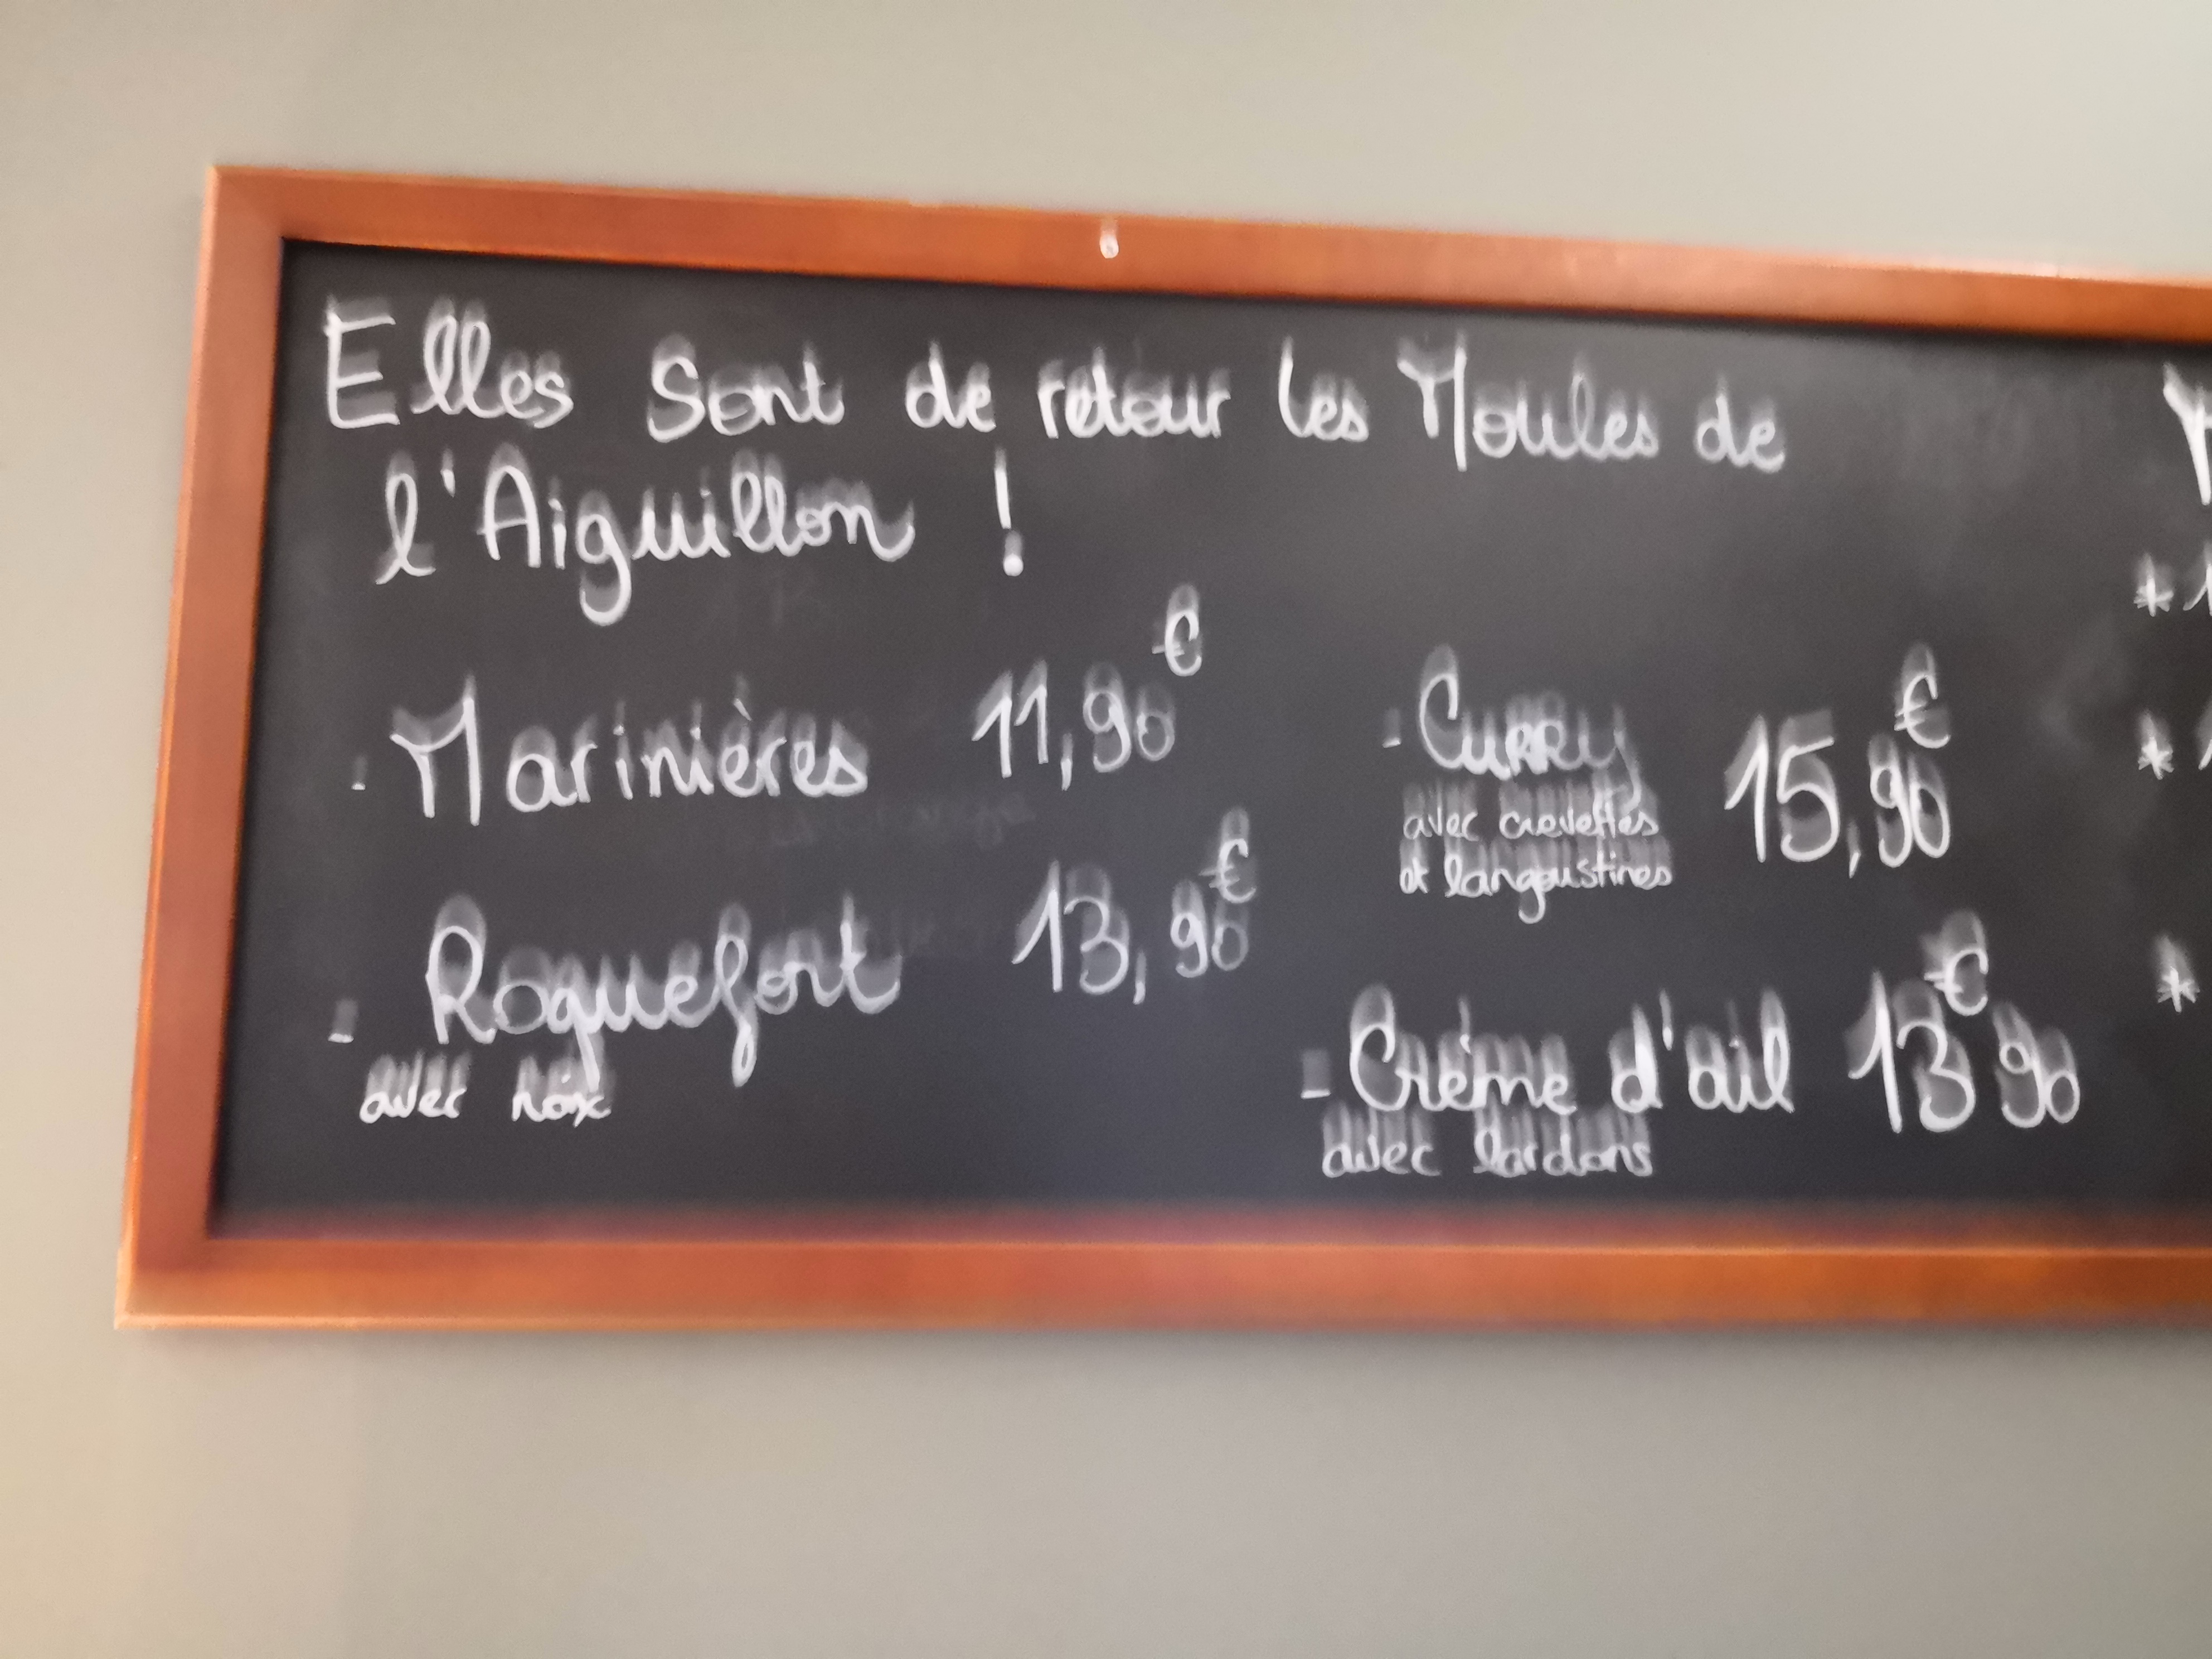 Elles sont de retour les Moules de
l'Aiguillon !
- Marinières 11,90€
- Roquefort 13,90€
avec noix
- Curry 15,90€
avec crevettes
et langoustines
- Crème d'ail 13€90
avec lardons
*
*
*